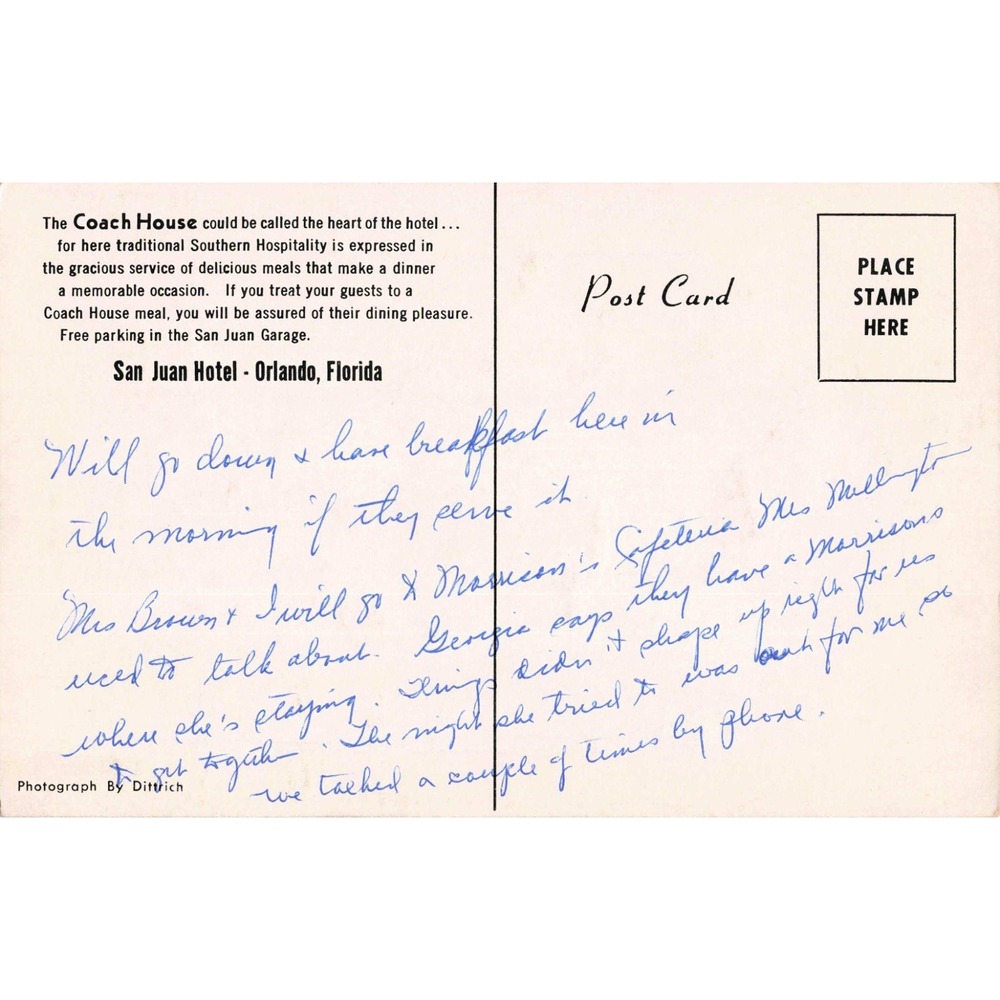 The Coach House could be called the heart of the hotel...
for here traditional Southern Hospitality is expressed in
the gracious service of delicious meals that make a dinner
a memorable occasion. If you treat your guests to a
Coach House meal, you will be assured of their dining pleasure.
Free parking in the San Juan Garage.
San Juan Hotel - Orlando, Florida
Post Card
PLACE
STAMP
HERE
Will go down & have breakfast here in
the morning if they serve it.
Mrs Brown & I will go to Morrison's Cafeteria Mrs
used to talk about. Georgia says they have a Morrisons
where she's staying. Things didn't shape up right for us
to get together. The night she tried to was out for me so
we talked a couple of times by phone.
Photograph By Dittrich